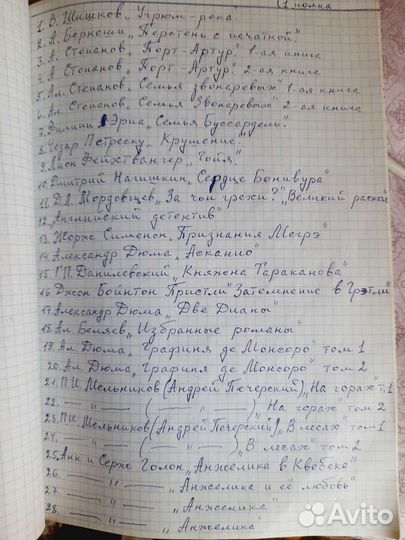 (1 полка
1. В. Шишков „Угрюм-река.
2. А. Беркеши „Перстень с печаткой"
3. А. Степанов „Порт-Артур" 1-ая книга
4. А. Степанов „Порт-Артур" 2-ая книга
5. Ал. Степанов „Семья звонаревых" 1-ая книга
6. Ал. Степанов „Семья Звонаревых" 2-ая книга
7. Филипп Эриа „Семья Буссардель".
8. Чезар Петреску „Крушение".
9. Лион Фейхтвангер „Гойя"
10. Дмитрий Нагишкин „Сердце Бонивура"
11. Д.Л. Мордовцев „За чьи грехи?" „Великий раскол"
12. „Английский детектив"
13. Жорж Сименон „Признания Мегрэ"
14. Александр Дюма „Асканио"
15. Г.П. Данилевский „Княжна Тараканова"
16. Джон Бойнтон Пристли „Затемнение в Грэтли"
17. Александр Дюма „Две Дианы"
18. Ал. Беляев „Избранные романы"
19. Ал. Дюма „Графиня де Монсоро" том 1
20. Ал. Дюма „Графиня де Монсоро" том 2
21. П.И. Мельников (Андрей Печерский) „На горах" т. 1
22. —— " —— (—— " ——) „На горах" том 2
23. П.И. Мельников (Андрей Печерский) „В лесах" том 1
24. —— " —— (—— " ——) „В лесах" том 2
25. Анн и Серж Голон „Анжелика в Квебеке"
26. —— " —— „Анжелика и её любовь"
27. —— " —— „Анжелика"
28. —— " —— „Анжелика
Avito